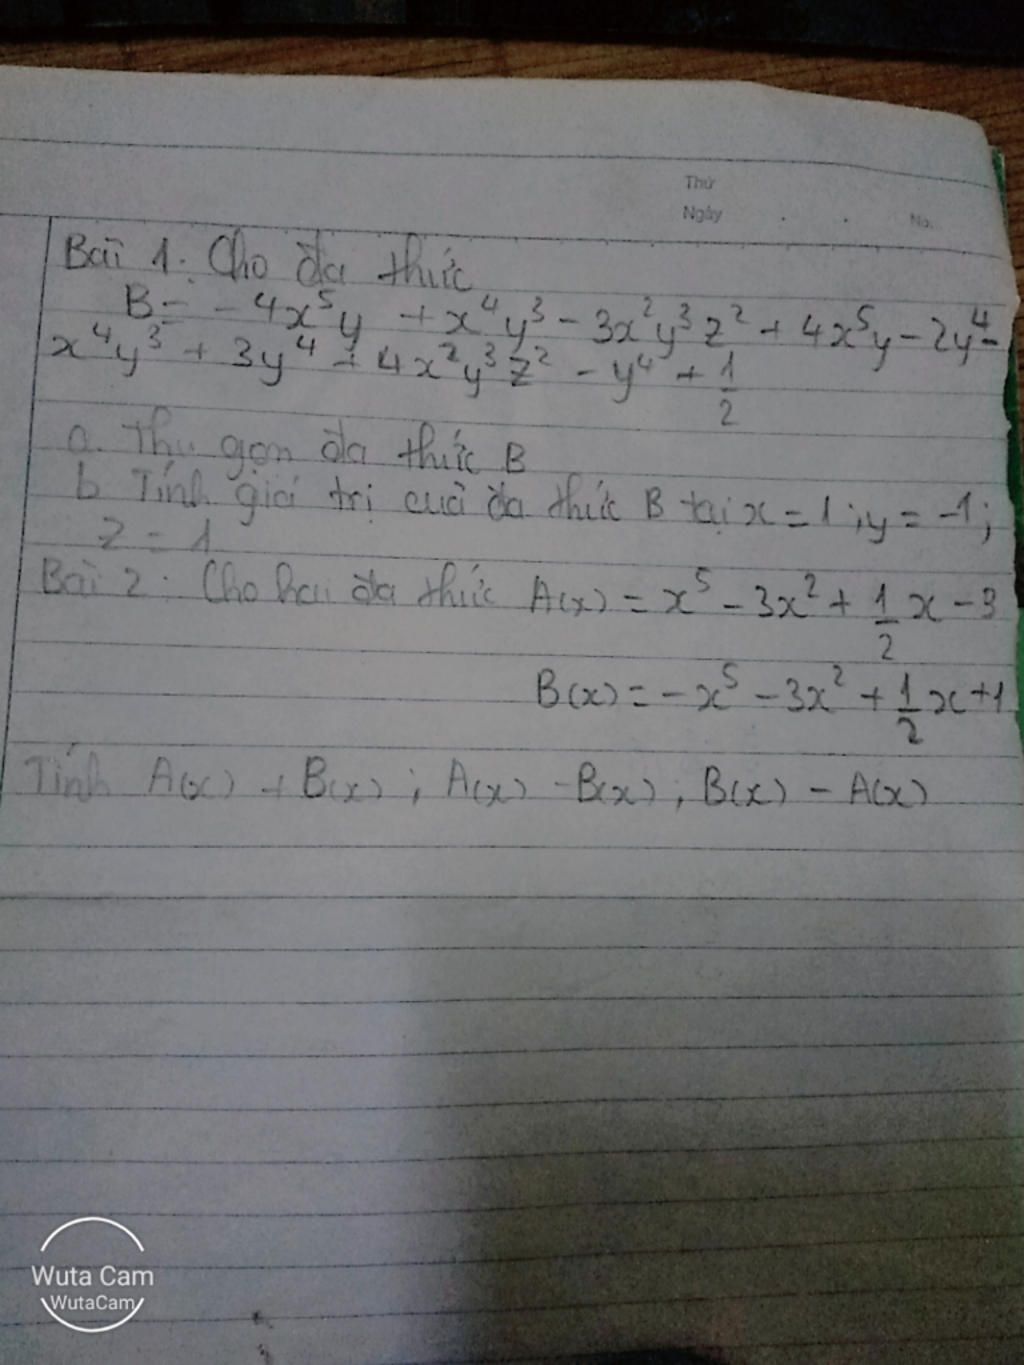 Thứ
Ngày . . No.
Bài 1: Cho đa thức
B = -4x⁵y + x⁴y³ - 3x²y³z² + 4x⁵y - 2y⁴ -
x⁴y³ + 3y⁴ + 4x²y³z² - y⁴ + 1/2
a. Thu gọn đa thức B
b Tính giá trị cuả đa thức B tại x = 1; y = -1;
z = 1
Bài 2: Cho hai đa thức A(x) = x⁵ - 3x² + 1/2 x - 3
B(x) = -x⁵ - 3x² + 1/2 x + 1
Tính A(x) + B(x); A(x) - B(x); B(x) - A(x)
Wuta Cam
WutaCam